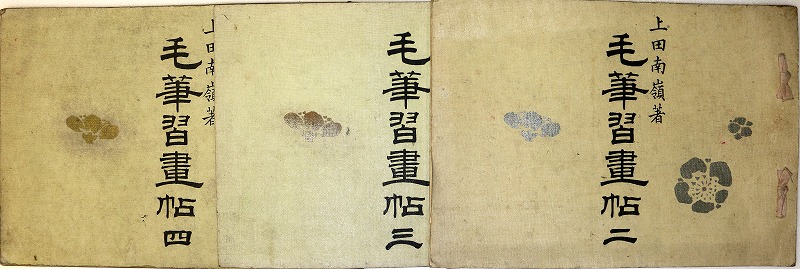 上田南嶺著
毛筆習畫帖二
毛筆習畫帖三
上田南嶺著
毛筆習畫帖四